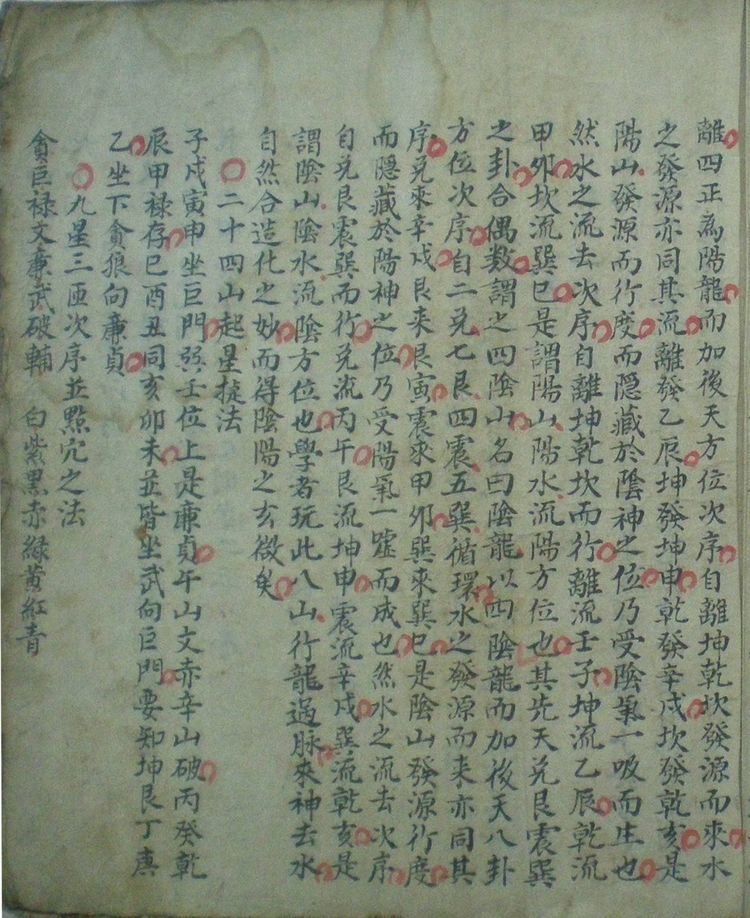 離四正為陽龍而加後天方位次序自離坤乾坎發源而來水
之發源亦同其流離發乙辰坤發坤申乾發辛戌坎發乾亥是
陽山發源而行度而隱藏於陰神之位乃受陰氣一吸而庄也
然水之流去次序自離坤乾坎而行離流壬子坤流乙辰乾流
甲夘坎流巽巳是謂陽山陽水流陽方位也其先天兑艮震巽
之卦合偶數謂之四陰山名曰陰龍以四陰龍而加後天八卦
方位次序自二兑七艮四震五巽循環水之發源而来亦同其
序兑來辛戌艮来艮寅震來甲夘巽來巽巳是陰山發源行度
而隱藏於陽神之位乃受陽氣一嘘而成也然水之流去次序
自兑艮震巽而行兑流丙午艮流坤申震流辛戌巽流乾亥是
謂陰山陰水流陰方位也學者玩此八山行龍過脉來神去水
自然合造化之妙而得陰陽之玄微矣
二十四山起星㨗法
子戍寅申坐巨門巽壬位上是廉貞午山文赤辛山破丙癸乾
辰甲禄存巳酉丑同亥卯未並皆坐武向巨門要知坤艮丁庚
乙坐下貪狼向廉貞
九星三匝次序並點穴之法
貪巨禄文廉武破輔　白紫黑赤緑黄紅青